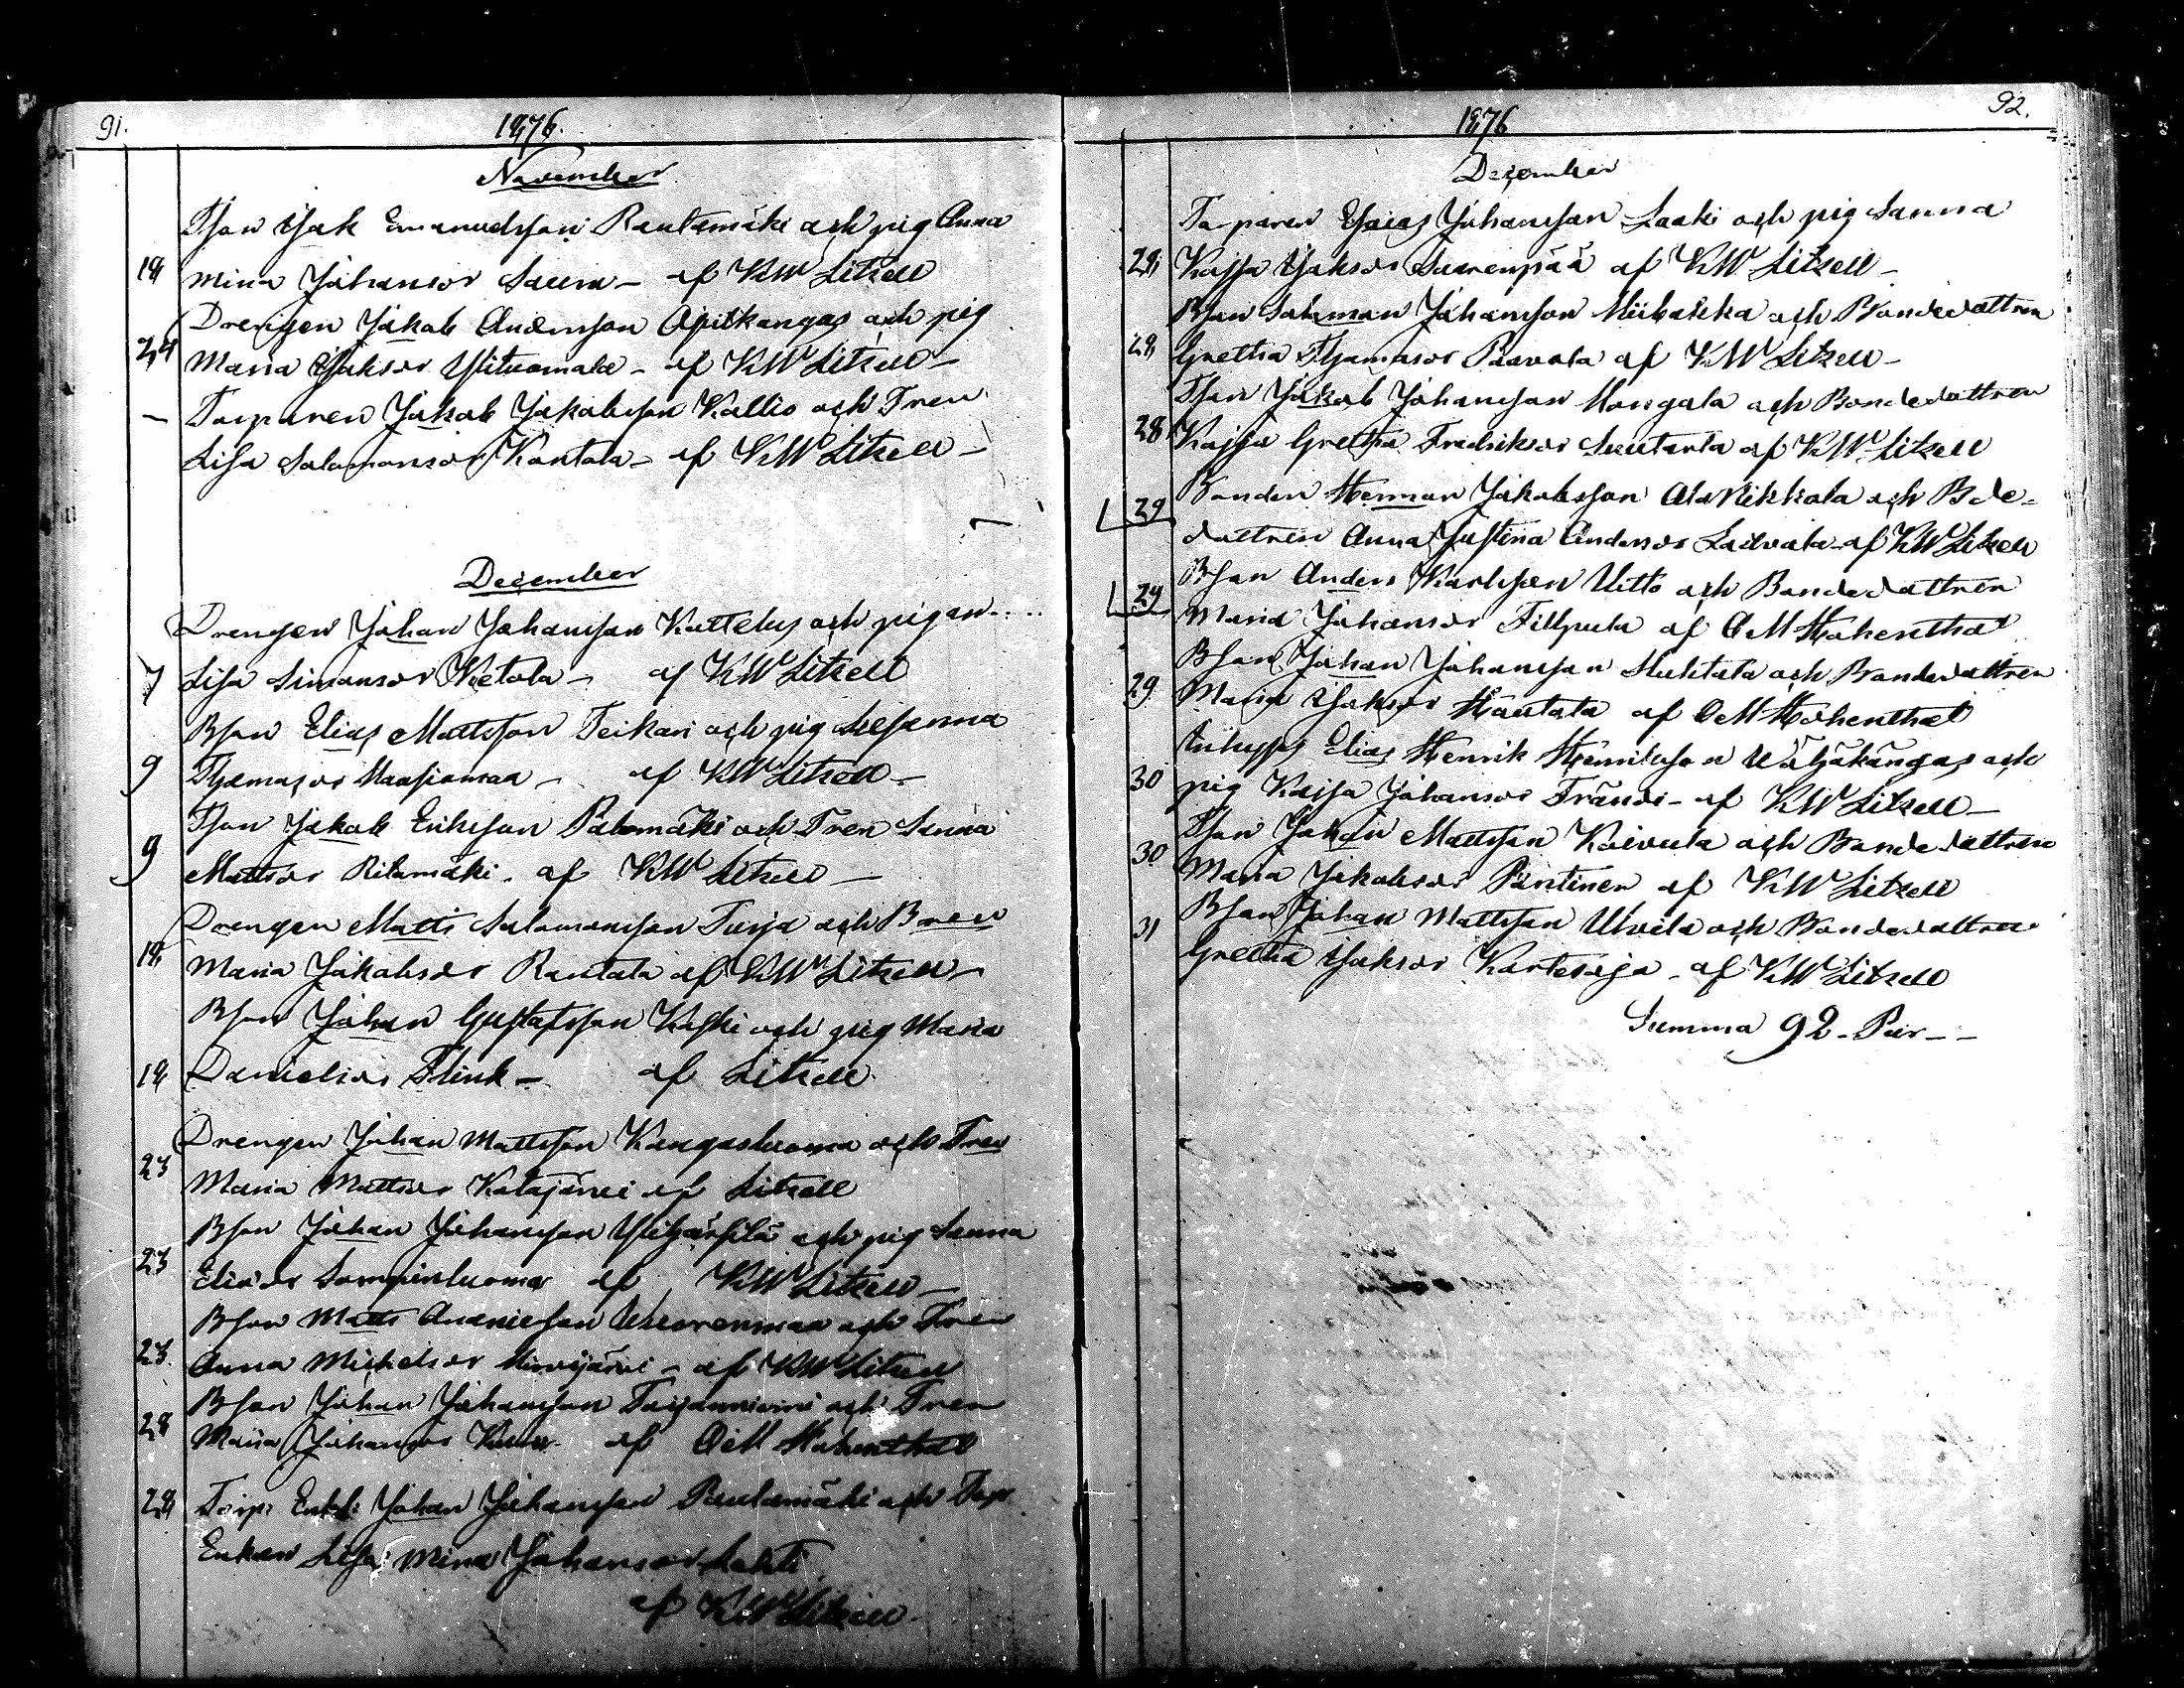 91.
1876.
November
Tson Isak Emanuelsson Rautamäki och pig Anna
18 Mina Johansdr Sauna - af KW Litzell
Drengen Jakob Andersson Opitkangas och pig
24 Maria Isaksdr Ylituomala - af KW Litzell -
- Torparen Jakob Jakobsson Kallio och Tren
Lisa Salomonsdr Kantola - af KW Litzell -
December
Drengen Johan Johansson Kattelus och pigan
7 Lisa Simonsdr Ketola - af KW Litzell
Bson Elias Mattsson Teikari och pig Susanna
9 Thomasdr Maasianmaa - af KW Litzell -
Tson Jakob Eriksson Palomäki och Tren Sanna
9 Mattsdr Ritamäki - af KW Litzell -
Drengen Matts Salomonsson Turja och Bren
18 Maria Jakobsdr Rantala af KW Litzell -
Bson Johan Gustafsson Koski och pig Maria
18 Danielsdr Flink - af Litzell
Drengen Johan Mattsson Kangasluoma och Tren
23 Maria Mattsdr Katajärvi af Litzell
Bson Johan Johansson och pig Sanna
23 Eliasdr af KW Litzell -
Bson Matts Ananiesson Wuorenmaa och Tren
23. Anna Michelsdr - af KW Litzell
Bson Johan Johansson och Tren
28 Maria Johansdr af OM Hohenthal
28 Torp: Enkl: Johan Johansson Rautamäki och Torp
Enkan Lisa Mina Johansdr Lahti
af KW Litzell
92.
1876
December
Torparen Esaias Johansson Laaki och pig Sanna
28 Kajsa Isaksdr Saarenpää af KW Litzell -
Bson Salomon Johansson och Bondedottren
28 Gretha Thomasdr Paavola af KW Litzell -
Tson Jakob Johansson Hongala och Bondedottren
28 Kajsa Gretha Fredriksdr Suutarla af KW Litzell
29 Bonden Herman Jakobsson Ala Nikkola och Bde=
dottren Anna Justina Andersdr Laitala af KW Litzell
Bson Anders Karlsson Uitto och Bondedottren
29 Maria Johansdr Fillpula af OM Hohenthal
Bson Johan Johansson Huhtala och Bondedottren
29 Maria Isaksdr Hautala af OM Hohenthal
Elias Henrik Henriksson Wäljäkangas och
30 pig Kajsa Johansdr Frändi - af KW Litzell -
Tson Johan Mattsson Koivula och Bondedottren
30 Maria Jakobsdr Pentinen af KW Litzell
Bson Johan Mattsson Ulvila och Bondedottren
31 Gretha Isaksdr Kortesoja - af KW Litzell
Summa 92 - Par - -